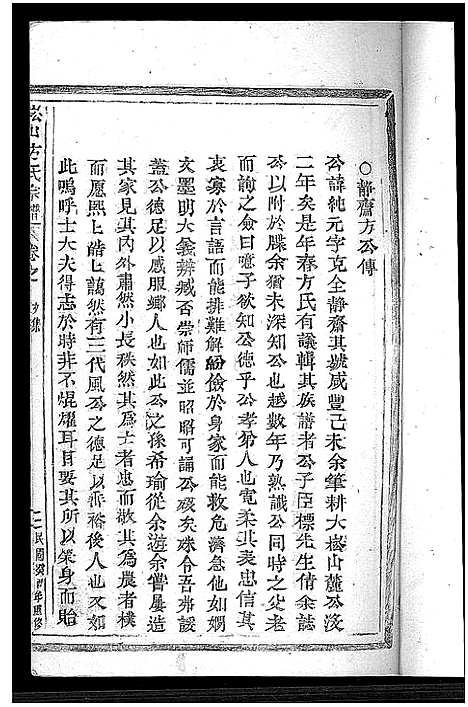 ○靜齋方公傳
公諱純元字克全靜齋其號咸豐己未余筆耕大崧山麓公沒
二年矣是年春方氏有議輯其族譜者公子臣標先生倩余誌
公以附於牒余猶未深知公也越數年乃熟識公同時之父老
而詢之僉曰噫子欲知公德乎公孝弟人也寬柔其表忠信其
衷察於言語而能排難解紛儉於身家而能救危濟急他如嫻
文墨明大義辨臧否崇師儒並昭昭可誦公殁矣殊令吾弗諼
蓋公德足以感服鄉人也如此公之孫希瑜從余遊余嘗屢造
其家見其內外肅然小長秩然其爲士者忠而敬其爲農者樸
而愿熙熙皥皥藹然有三代風公之德足以垂裕後人也又如
此嗚呼士大夫得志於時非不焜耀耳目要其所以榮身而貽
崧山方氏宗譜
卷之
民國癸酉年重修